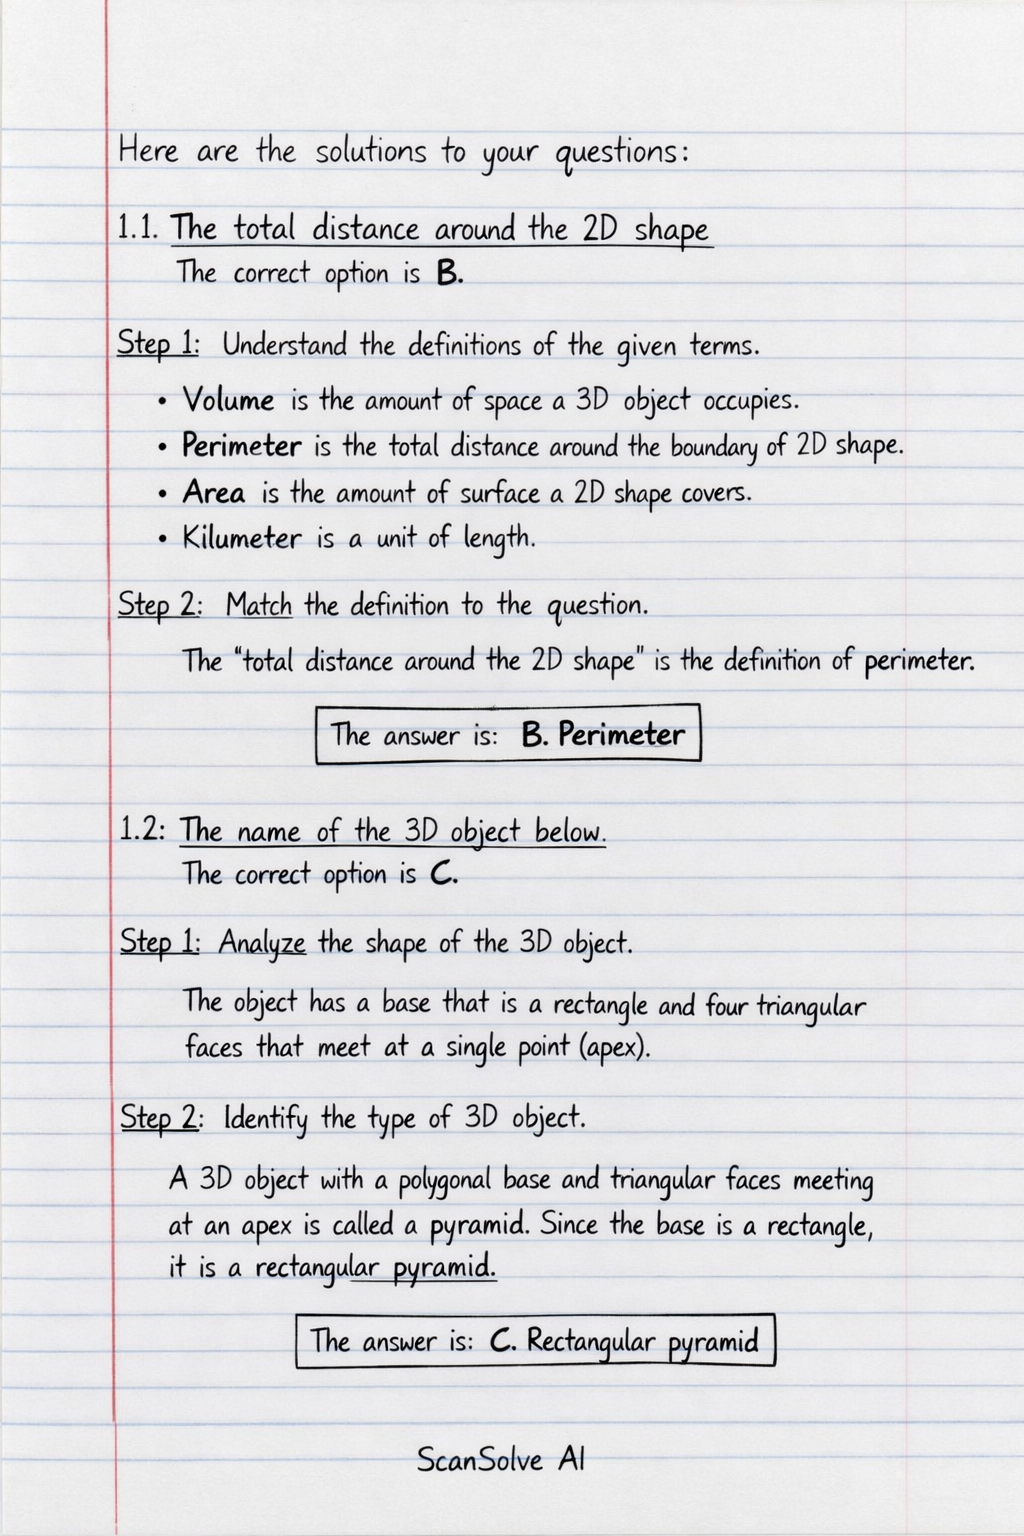 Here are the solutions to your questions:
1.1. The total distance around the 2D shape
The correct option is B.
Step 1: Understand the definitions of the given terms.
• Volume is the amount of space a 3D object occupies.
• Perimeter is the total distance around the boundary of 2D shape.
• Area is the amount of surface a 2D shape covers.
• Kilumeter is a unit of length.
Step 2: Match the definition to the question.
The "total distance around the 2D shape" is the definition of perimeter.
The answer is: B. Perimeter
1.2: The name of the 3D object below.
The correct option is C.
Step 1: Analyze the shape of the 3D object.
The object has a base that is a rectangle and four triangular
faces that meet at a single point (apex).
Step 2: Identify the type of 3D object.
A 3D object with a polygonal base and triangular faces meeting
at an apex is called a pyramid. Since the base is a rectangle,
it is a rectangular pyramid.
The answer is: C. Rectangular pyramid
ScanSolve AI